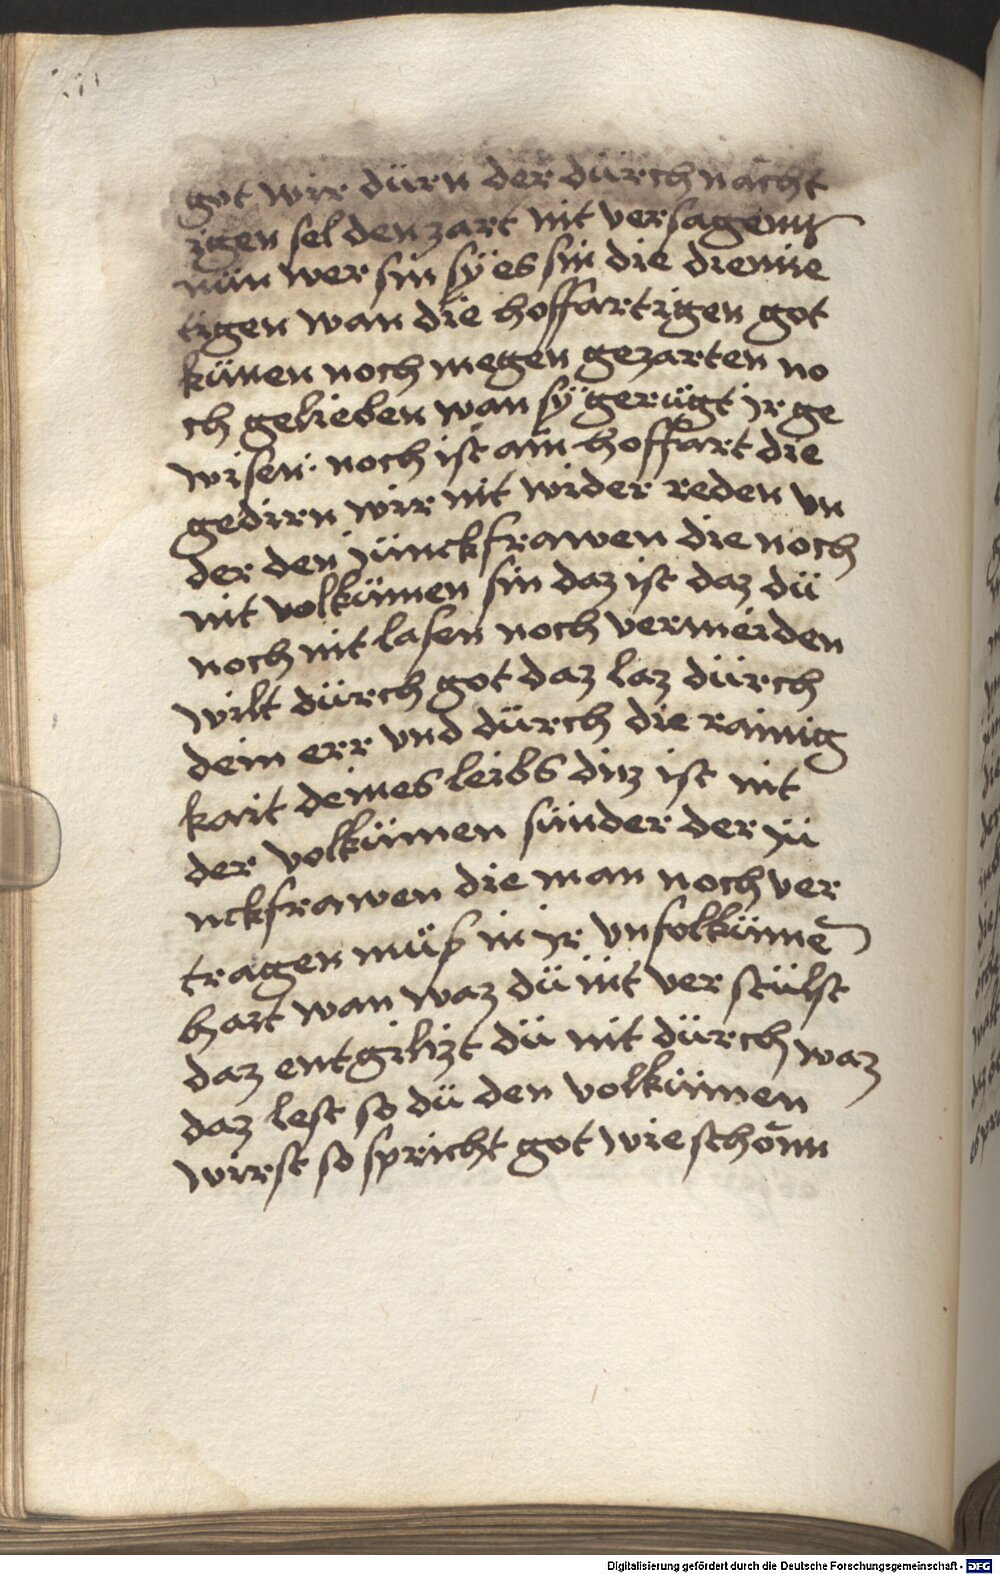 got wir dürn der dürch nächt
igen sel den zart nit versagenn
nün wer sin sÿ es sin die diemie
tigen wan die hoffartigen got
künen noch megen gezarten no
ch gelieben wan sÿ gerügt ir ge
wisen · noch ist ain hoffart die
gedirn wir nit wider reden vn
der den jünckfrawen die noch
nit volkümen sin daz ist daz dü
noch nit lasen noch vermeiden
wilt dürch got daz laz dürch
dein err vnd dürch die rainig
kait deines leibs diz ist nit
der volkümen sünder der jü
nckfrawen die man noch ver
tragen müß in ir vnfolküme̅
hart wan waz dü nit ver stülst
daz entgiltzt dü nit dürch waz
daz lest so dü den volkümen
wirst so spricht got wie schönn
Digitalisierung gefördert durch die Deutsche Forschungsgemeinschaft - DFG